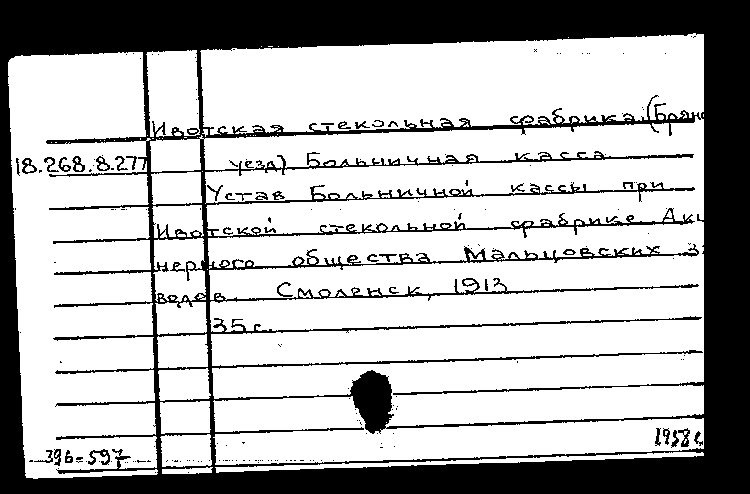 Ивотская стекольная фабрика (Брянс
18.268.8.277 уезд). Больничная касса
Устав Больничной кассы при
Ивотской стекольной фабрике Акц
нерного общества Мальцовских за
водов. Смоленск, 1913
35 с.
1958 г
396-597